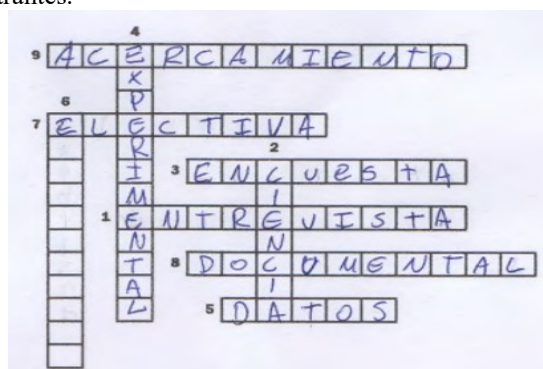 trantes.
4
9 ACERCAMIENTO
6
7 ELECTIVA
2
3 ENCuesTA
1 ENTREVISTA
8 DOCUMENTAL
5 DATOS
EXPERIMENTAL
CIENCIA